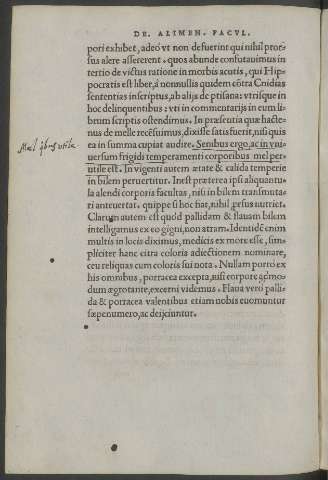 DE. ALIMEN. FACVL.
pori exhibet, adeò vt non defuerint qui nihil pror-
sus alere assererent. quos abunde confutauimus in
tertio de victus ratione in morbis acutis, qui Hip-
pocratis est liber, à nonnullis quidem cōtra Cnidias
sententias inscriptus, ab alijs de ptisana: vtrisque in
hoc delinquentibus: vti in commentarijs in eum li-
brum scriptis ostendimus. In præsentia quæ hacte-
nus de melle recēsuimus, dixisse satis fuerit, nisi quis
ea in summa cupiat audire. Senibus ergo, ac in vni-
uersum frigidi temperamenti corporibus mel per-
utile est. In vigenti autem ætate & calida temperie
in bilem peruertitur. Inest præterea ipsi aliquantu-
la alendi corporis facultas, nisi in bilem transmuta-
ri anteuertat. quippe si hoc fiat, nihil prorsus nutriet.
Clarum autem est quòd pallidam & flauam bilem
intelligamus ex eo gigni, non atram. Identidē enim
multis in locis diximus, medicis ex more esse, sim-
pliciter hanc citra coloris adiectionem nominare,
ceu reliquas cum coloris sui nota. Nullam porrò ex
his omnibus, porracea excepta, nisi corpore admo-
dum ægrotante, excerni videmus. Flaua verò palli-
da & porracea valentibus etiam nobis euomuntur
sæpenumero, ac deijciuntur.
Mel
utile